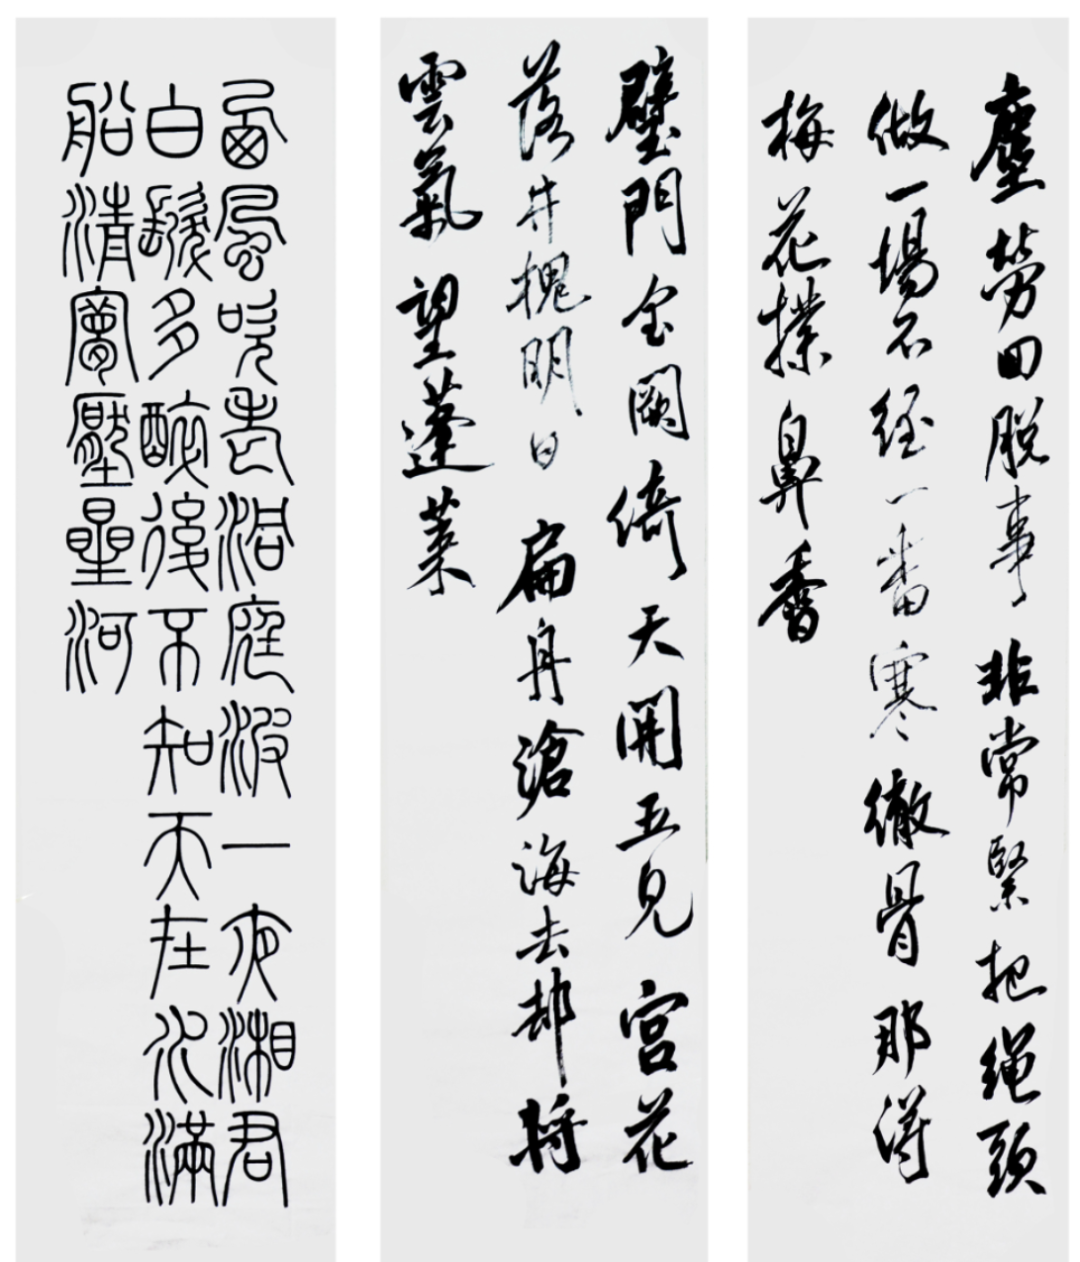 塵勞回脫事非常緊把繩頭
做一場不經一番寒徹骨那得
梅花撲鼻香
璧門金闕倚天開五見宮花
落井槐明日扁舟滄海去却將
雲氣望蓬萊
西風吹老洞庭波一夜湘君
白髮多醉後不知天在水滿
船清夢壓星河